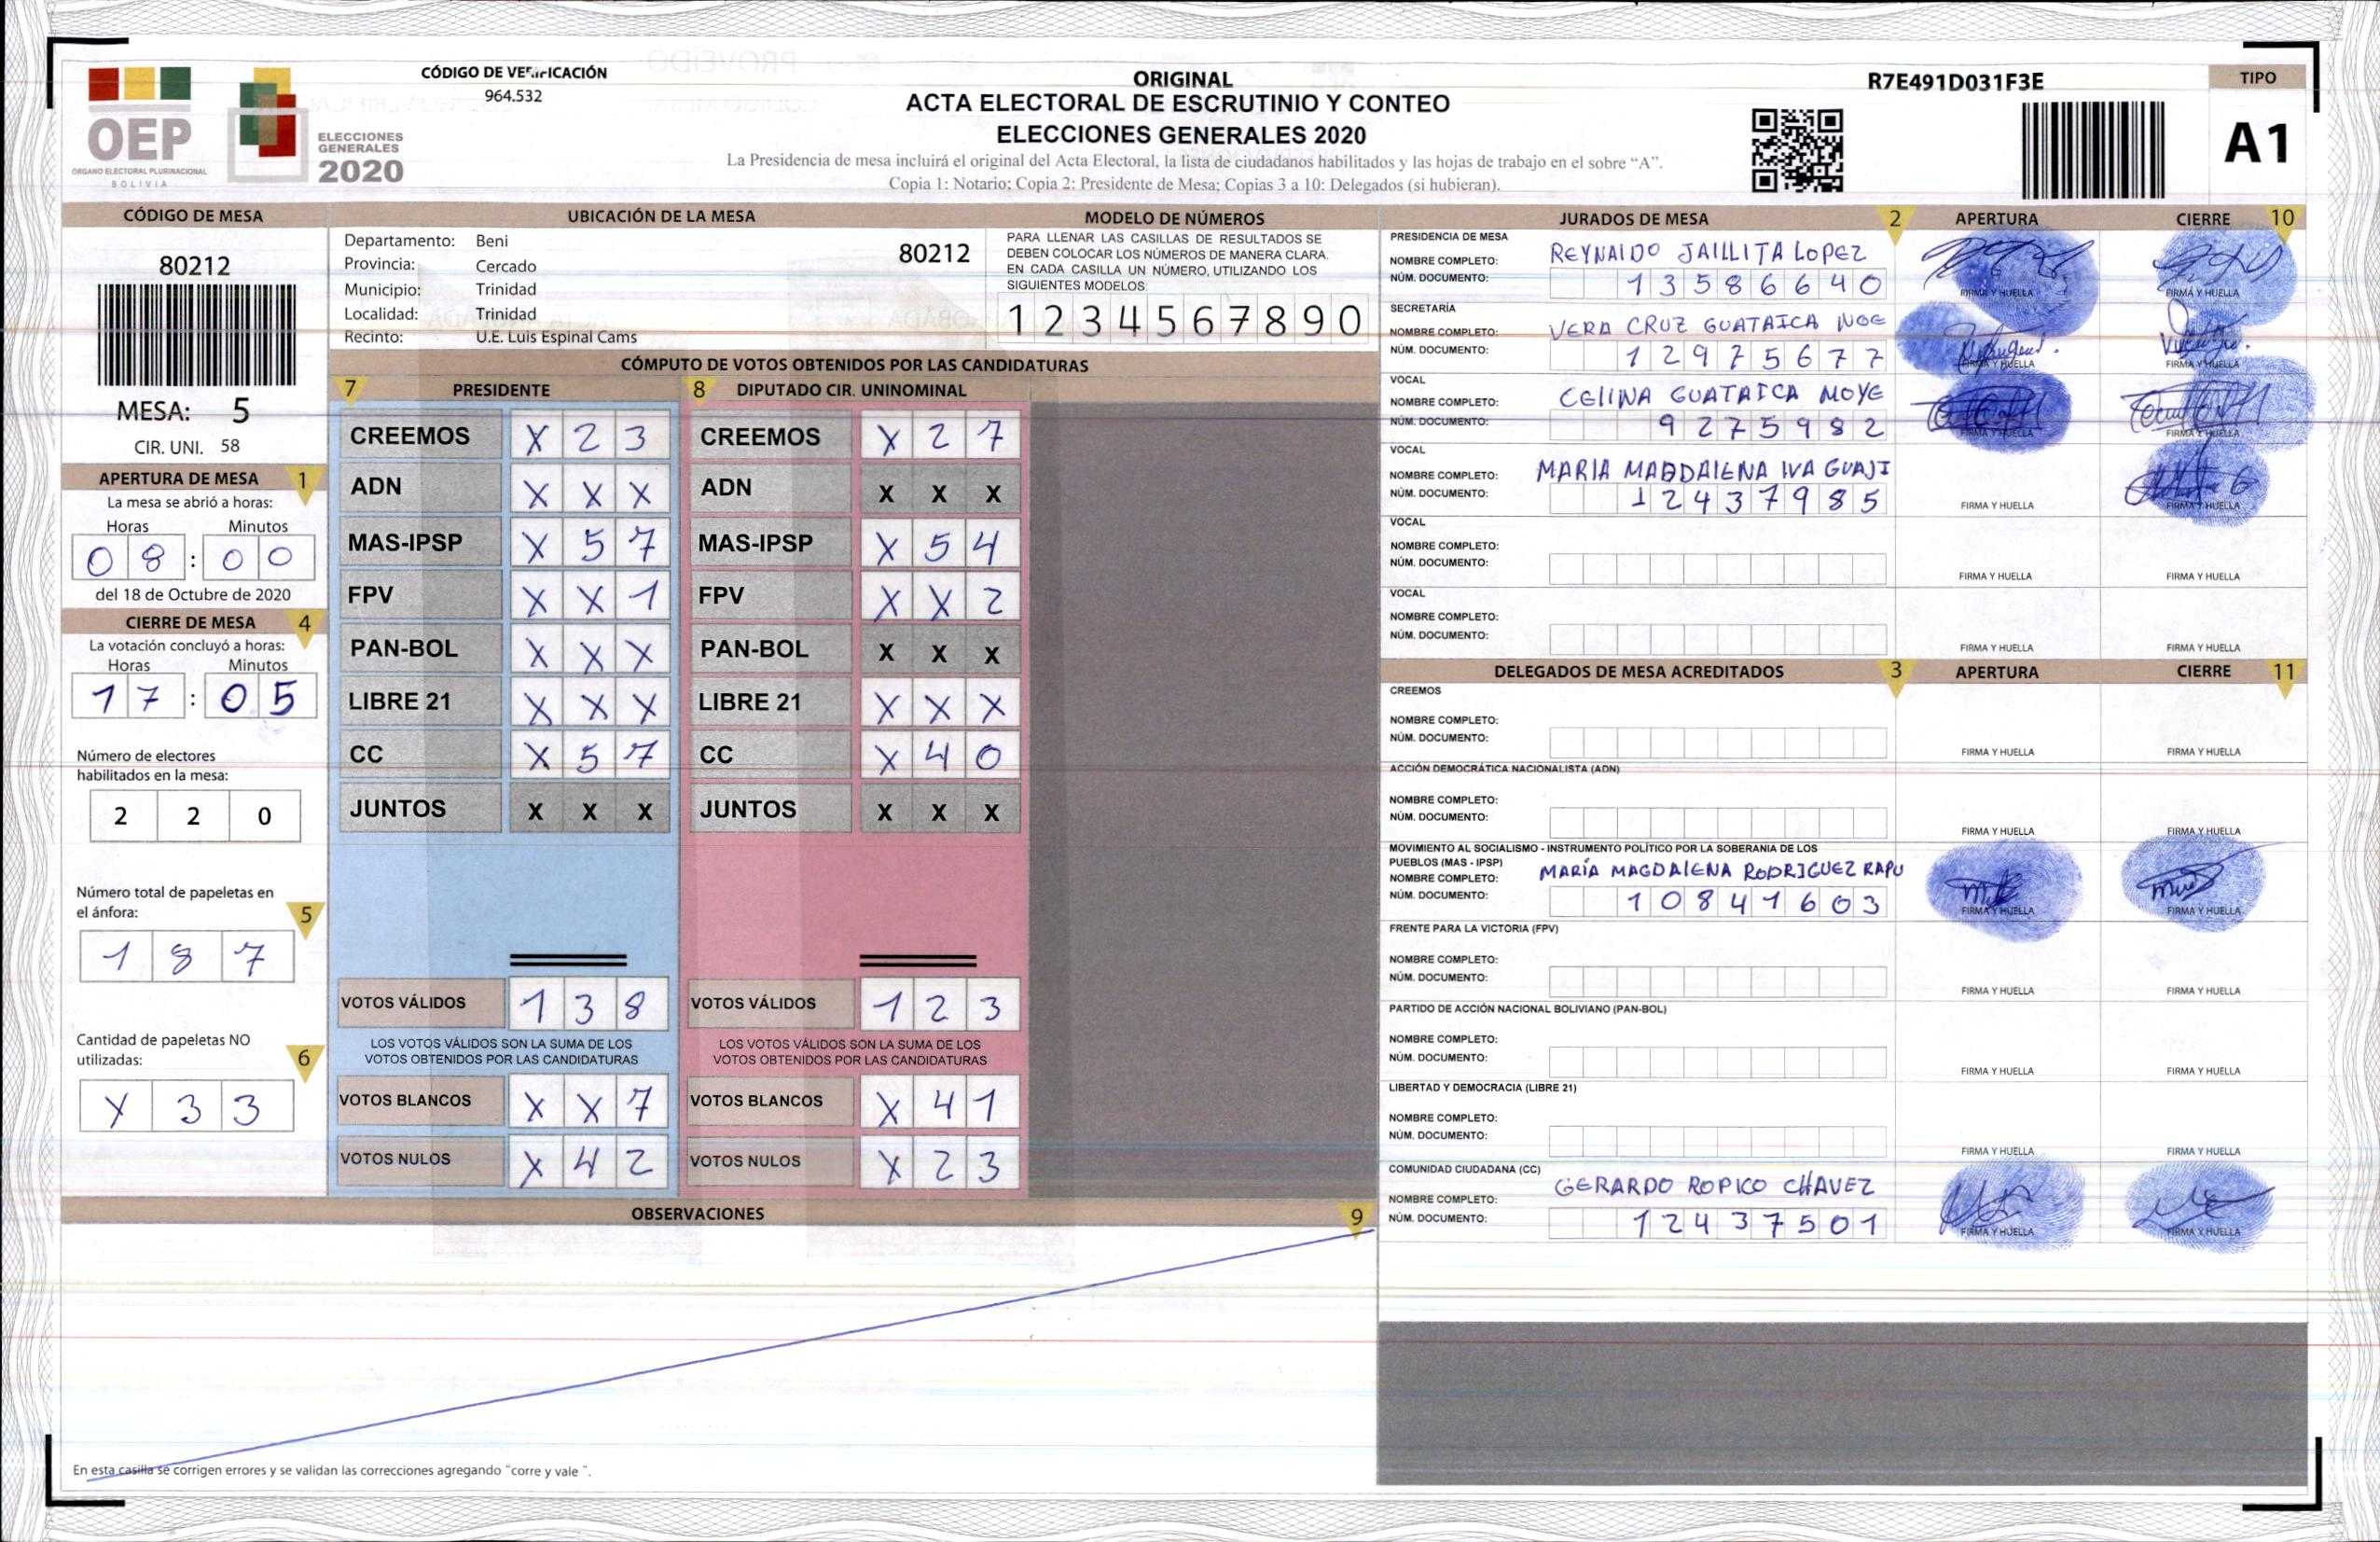 OEP
ÓRGANO ELECTORAL PLURINACIONAL
BOLIVIA
ELECCIONES
GENERALES
2020
CÓDIGO DE VERIFICACIÓN
964.532
ORIGINAL
ACTA ELECTORAL DE ESCRUTINIO Y CONTEO
ELECCIONES GENERALES 2020
La Presidencia de mesa incluirá el original del Acta Electoral, la lista de ciudadanos habilitados y las hojas de trabajo en el sobre “A”.
Copia 1: Notario; Copia 2: Presidente de Mesa; Copias 3 a 10: Delegados (si hubieran).
R7E491D031F3E
TIPO
A1
CÓDIGO DE MESA
80212
MESA: 5
CIR. UNI. 58
APERTURA DE MESA 1
La mesa se abrió a horas:
Horas Minutos
0 8 : 0 0
del 18 de Octubre de 2020
CIERRE DE MESA 4
La votación concluyó a horas:
Horas Minutos
1 7 : 0 5
Número de electores
habilitados en la mesa:
2 2 0
Número total de papeletas en
el ánfora: 5
1 8 7
Cantidad de papeletas NO
utilizadas: 6
X 3 3
UBICACIÓN DE LA MESA
Departamento: Beni
80212
Provincia: Cercado
Municipio: Trinidad
Localidad: Trinidad
Recinto: U.E. Luis Espinal Cams
MODELO DE NÚMEROS
PARA LLENAR LAS CASILLAS DE RESULTADOS SE
DEBEN COLOCAR LOS NÚMEROS DE MANERA CLARA.
EN CADA CASILLA UN NÚMERO, UTILIZANDO LOS
SIGUIENTES MODELOS:
1 2 3 4 5 6 7 8 9 0
CÓMPUTO DE VOTOS OBTENIDOS POR LAS CANDIDATURAS
7 PRESIDENTE 8 DIPUTADO CIR. UNINOMINAL
CREEMOS X 2 3 CREEMOS X 2 7
ADN X X X ADN X X X
MAS-IPSP X 5 7 MAS-IPSP X 5 4
FPV X X 1 FPV X X 2
PAN-BOL X X X PAN-BOL X X X
LIBRE 21 X X X LIBRE 21 X X X
CC X 5 7 CC X 4 0
JUNTOS X X X JUNTOS X X X
VOTOS VÁLIDOS 1 3 8 VOTOS VÁLIDOS 1 2 3
LOS VOTOS VÁLIDOS SON LA SUMA DE LOS LOS VOTOS VÁLIDOS SON LA SUMA DE LOS
VOTOS OBTENIDOS POR LAS CANDIDATURAS VOTOS OBTENIDOS POR LAS CANDIDATURAS
VOTOS BLANCOS X X 7 VOTOS BLANCOS X 4 1
VOTOS NULOS X 4 2 VOTOS NULOS X 2 3
OBSERVACIONES 9
En esta casilla se corrigen errores y se validan las correcciones agregando “corre y vale ”.
JURADOS DE MESA 2 APERTURA CIERRE 10
PRESIDENCIA DE MESA
NOMBRE COMPLETO: REYNALDO JAILLITA LOPEZ
NÚM. DOCUMENTO: 1 3 5 8 6 6 4 0
FIRMA Y HUELLA FIRMA Y HUELLA
SECRETARÍA
NOMBRE COMPLETO: VERA CRUZ GUATAICA NOE
NÚM. DOCUMENTO: 1 2 9 7 5 6 7 7
FIRMA Y HUELLA FIRMA Y HUELLA
VOCAL
NOMBRE COMPLETO: CELINA GUATAICA MOYE
NÚM. DOCUMENTO: 9 2 7 5 9 8 2
FIRMA Y HUELLA FIRMA Y HUELLA
VOCAL
NOMBRE COMPLETO: MARIA MAGDALENA IVA GUAJI
NÚM. DOCUMENTO: 1 2 4 3 7 9 8 5
FIRMA Y HUELLA FIRMA Y HUELLA
VOCAL
NOMBRE COMPLETO:
NÚM. DOCUMENTO:
FIRMA Y HUELLA FIRMA Y HUELLA
VOCAL
NOMBRE COMPLETO:
NÚM. DOCUMENTO:
FIRMA Y HUELLA FIRMA Y HUELLA
DELEGADOS DE MESA ACREDITADOS 3 APERTURA CIERRE 11
CREEMOS
NOMBRE COMPLETO:
NÚM. DOCUMENTO:
FIRMA Y HUELLA FIRMA Y HUELLA
ACCIÓN DEMOCRÁTICA NACIONALISTA (ADN)
NOMBRE COMPLETO:
NÚM. DOCUMENTO:
FIRMA Y HUELLA FIRMA Y HUELLA
MOVIMIENTO AL SOCIALISMO - INSTRUMENTO POLÍTICO POR LA SOBERANIA DE LOS
PUEBLOS (MAS - IPSP)
NOMBRE COMPLETO: MARÍA MAGDALENA RODRIGUEZ RAPU
NÚM. DOCUMENTO: 1 0 8 4 1 6 0 3
FIRMA Y HUELLA FIRMA Y HUELLA
FRENTE PARA LA VICTORIA (FPV)
NOMBRE COMPLETO:
NÚM. DOCUMENTO:
FIRMA Y HUELLA FIRMA Y HUELLA
PARTIDO DE ACCIÓN NACIONAL BOLIVIANO (PAN-BOL)
NOMBRE COMPLETO:
NÚM. DOCUMENTO:
FIRMA Y HUELLA FIRMA Y HUELLA
LIBERTAD Y DEMOCRACIA (LIBRE 21)
NOMBRE COMPLETO:
NÚM. DOCUMENTO:
FIRMA Y HUELLA FIRMA Y HUELLA
COMUNIDAD CIUDADANA (CC)
NOMBRE COMPLETO: GERARDO ROPICO CHAVEZ
NÚM. DOCUMENTO: 1 2 4 3 7 5 0 1
FIRMA Y HUELLA FIRMA Y HUELLA